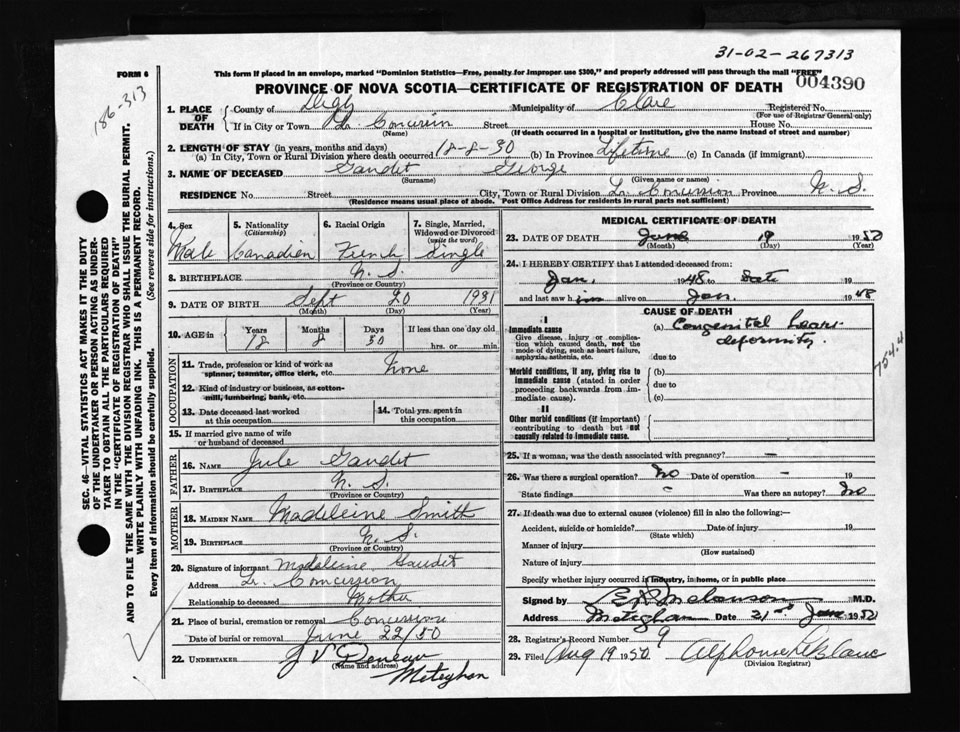 31-02-267313
FORM 6
This form if placed in an envelope, marked "Dominion Statistics—Free, penalty for improper use $300," and properly addressed will pass through the mail "FREE"
004390
PROVINCE OF NOVA SCOTIA—CERTIFICATE OF REGISTRATION OF DEATH
186-313
SEC. 46—VITAL STATISTICS ACT MAKES IT THE DUTY
OF THE UNDERTAKER OR PERSON ACTING AS UNDER-
TAKER TO OBTAIN ALL THE PARTICULARS REQUIRED
IN THE "CERTIFICATE OF REGISTRATION OF DEATH"
AND TO FILE THE SAME WITH THE DIVISION REGISTRAR WHO SHALL ISSUE THE BURIAL PERMIT.
WRITE PLAINLY WITH UNFADING INK. THIS IS A PERMANENT RECORD.
Every item of information should be carefully supplied. (See reverse side for instructions.)
1. PLACE OF DEATH
County of Digby Municipality of Clare Registered No.
(For use of Registrar General only)
If in City or Town Street House No.
(Name) (If death occurred in a hospital or institution, give the name instead of street and number)
2. LENGTH OF STAY (in years, months and days)
(a) In City, Town or Rural Division where death occurred 18-8-30 (b) In Province Lifetime (c) In Canada (if immigrant)
3. NAME OF DECEASED Gaudet George
(Surname) (Given name or names)
RESIDENCE No. Street City, Town or Rural Division Lr. Concession Province N. S.
(Residence means usual place of abode. Post Office Address for residents in rural parts not sufficient)
4. Sex Male
5. Nationality (Citizenship) Canadian
6. Racial Origin French
7. Single, Married, Widowed or Divorced (write the word) Single
8. BIRTHPLACE N. S.
(Province or Country)
9. DATE OF BIRTH Sept 20 1931
(Month) (Day) (Year)
10. AGE in Years 18 Months 8 Days 30 If less than one day old
hrs. or min.
OCCUPATION
11. Trade, profession or kind of work as spinner, teamster, office clerk, etc. None
12. Kind of industry or business, as cotton-mill, lumbering, bank, etc.
13. Date deceased last worked at this occupation
14. Total yrs. spent in this occupation
15. If married give name of wife or husband of deceased
FATHER
16. NAME Jule Gaudet
17. BIRTHPLACE N. S.
(Province or Country)
MOTHER
18. MAIDEN NAME Madeleine Smith
19. BIRTHPLACE N. S.
(Province or Country)
20. Signature of informant Madeleine Gaudet
Address Lr. Concession
Relationship to deceased Mother
21. Place of burial, cremation or removal Concession
Date of burial or removal June 22/50
22. UNDERTAKER J V Deveau
(Name and address)
Meteghan
MEDICAL CERTIFICATE OF DEATH
23. DATE OF DEATH June 19 1950
(Month) (Day) (Year)
24. I HEREBY CERTIFY that I attended deceased from:
Jan. 1948 to Date
and last saw him alive on Jan. 1948
CAUSE OF DEATH
I
Immediate cause
Give disease, injury or complication which caused death, not the mode of dying, such as heart failure, asphyxia, asthenia, etc.
(a) Congenital heart
deformity.
due to
Morbid conditions, if any, giving rise to immediate cause (stated in order proceeding backwards from immediate cause).
(b)
due to
(c)
II
Other morbid conditions (if important) contributing to death but not causally related to immediate cause.
754.4
25. If a woman, was the death associated with pregnancy? —
26. Was there a surgical operation? No Date of operation — 19
State findings — Was there an autopsy? No
27. If death was due to external causes (violence) fill in also the following:—
Accident, suicide or homicide? Date of injury 19
(State which)
Manner of injury
(How sustained)
Nature of injury
Specify whether injury occurred in industry, in home, or in public place
Signed by Melanson M.D.
Address Meteghan Date 21st June 1950
28. Registrar's Record Number 9
29. Filed Aug 19 1950 Alphonse LeBlanc
(Division Registrar)